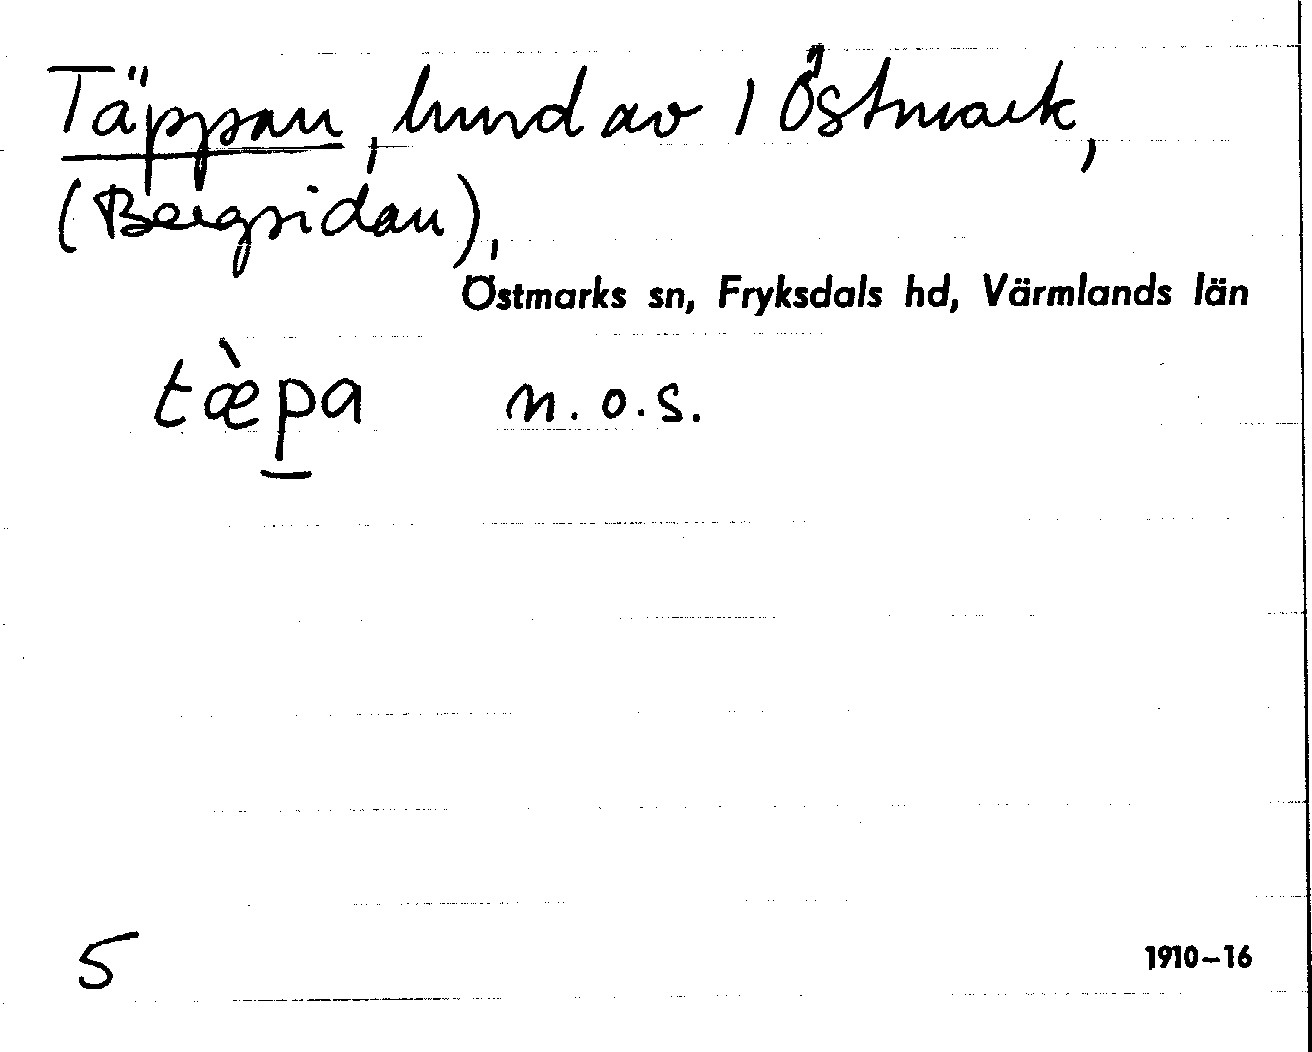 Täppan, lund av 1 Östmark,
(Bergsidan),
Östmarks sn, Fryksdals hd, Värmlands län
tæ̀p̲a n.o.s.
5
1910–16